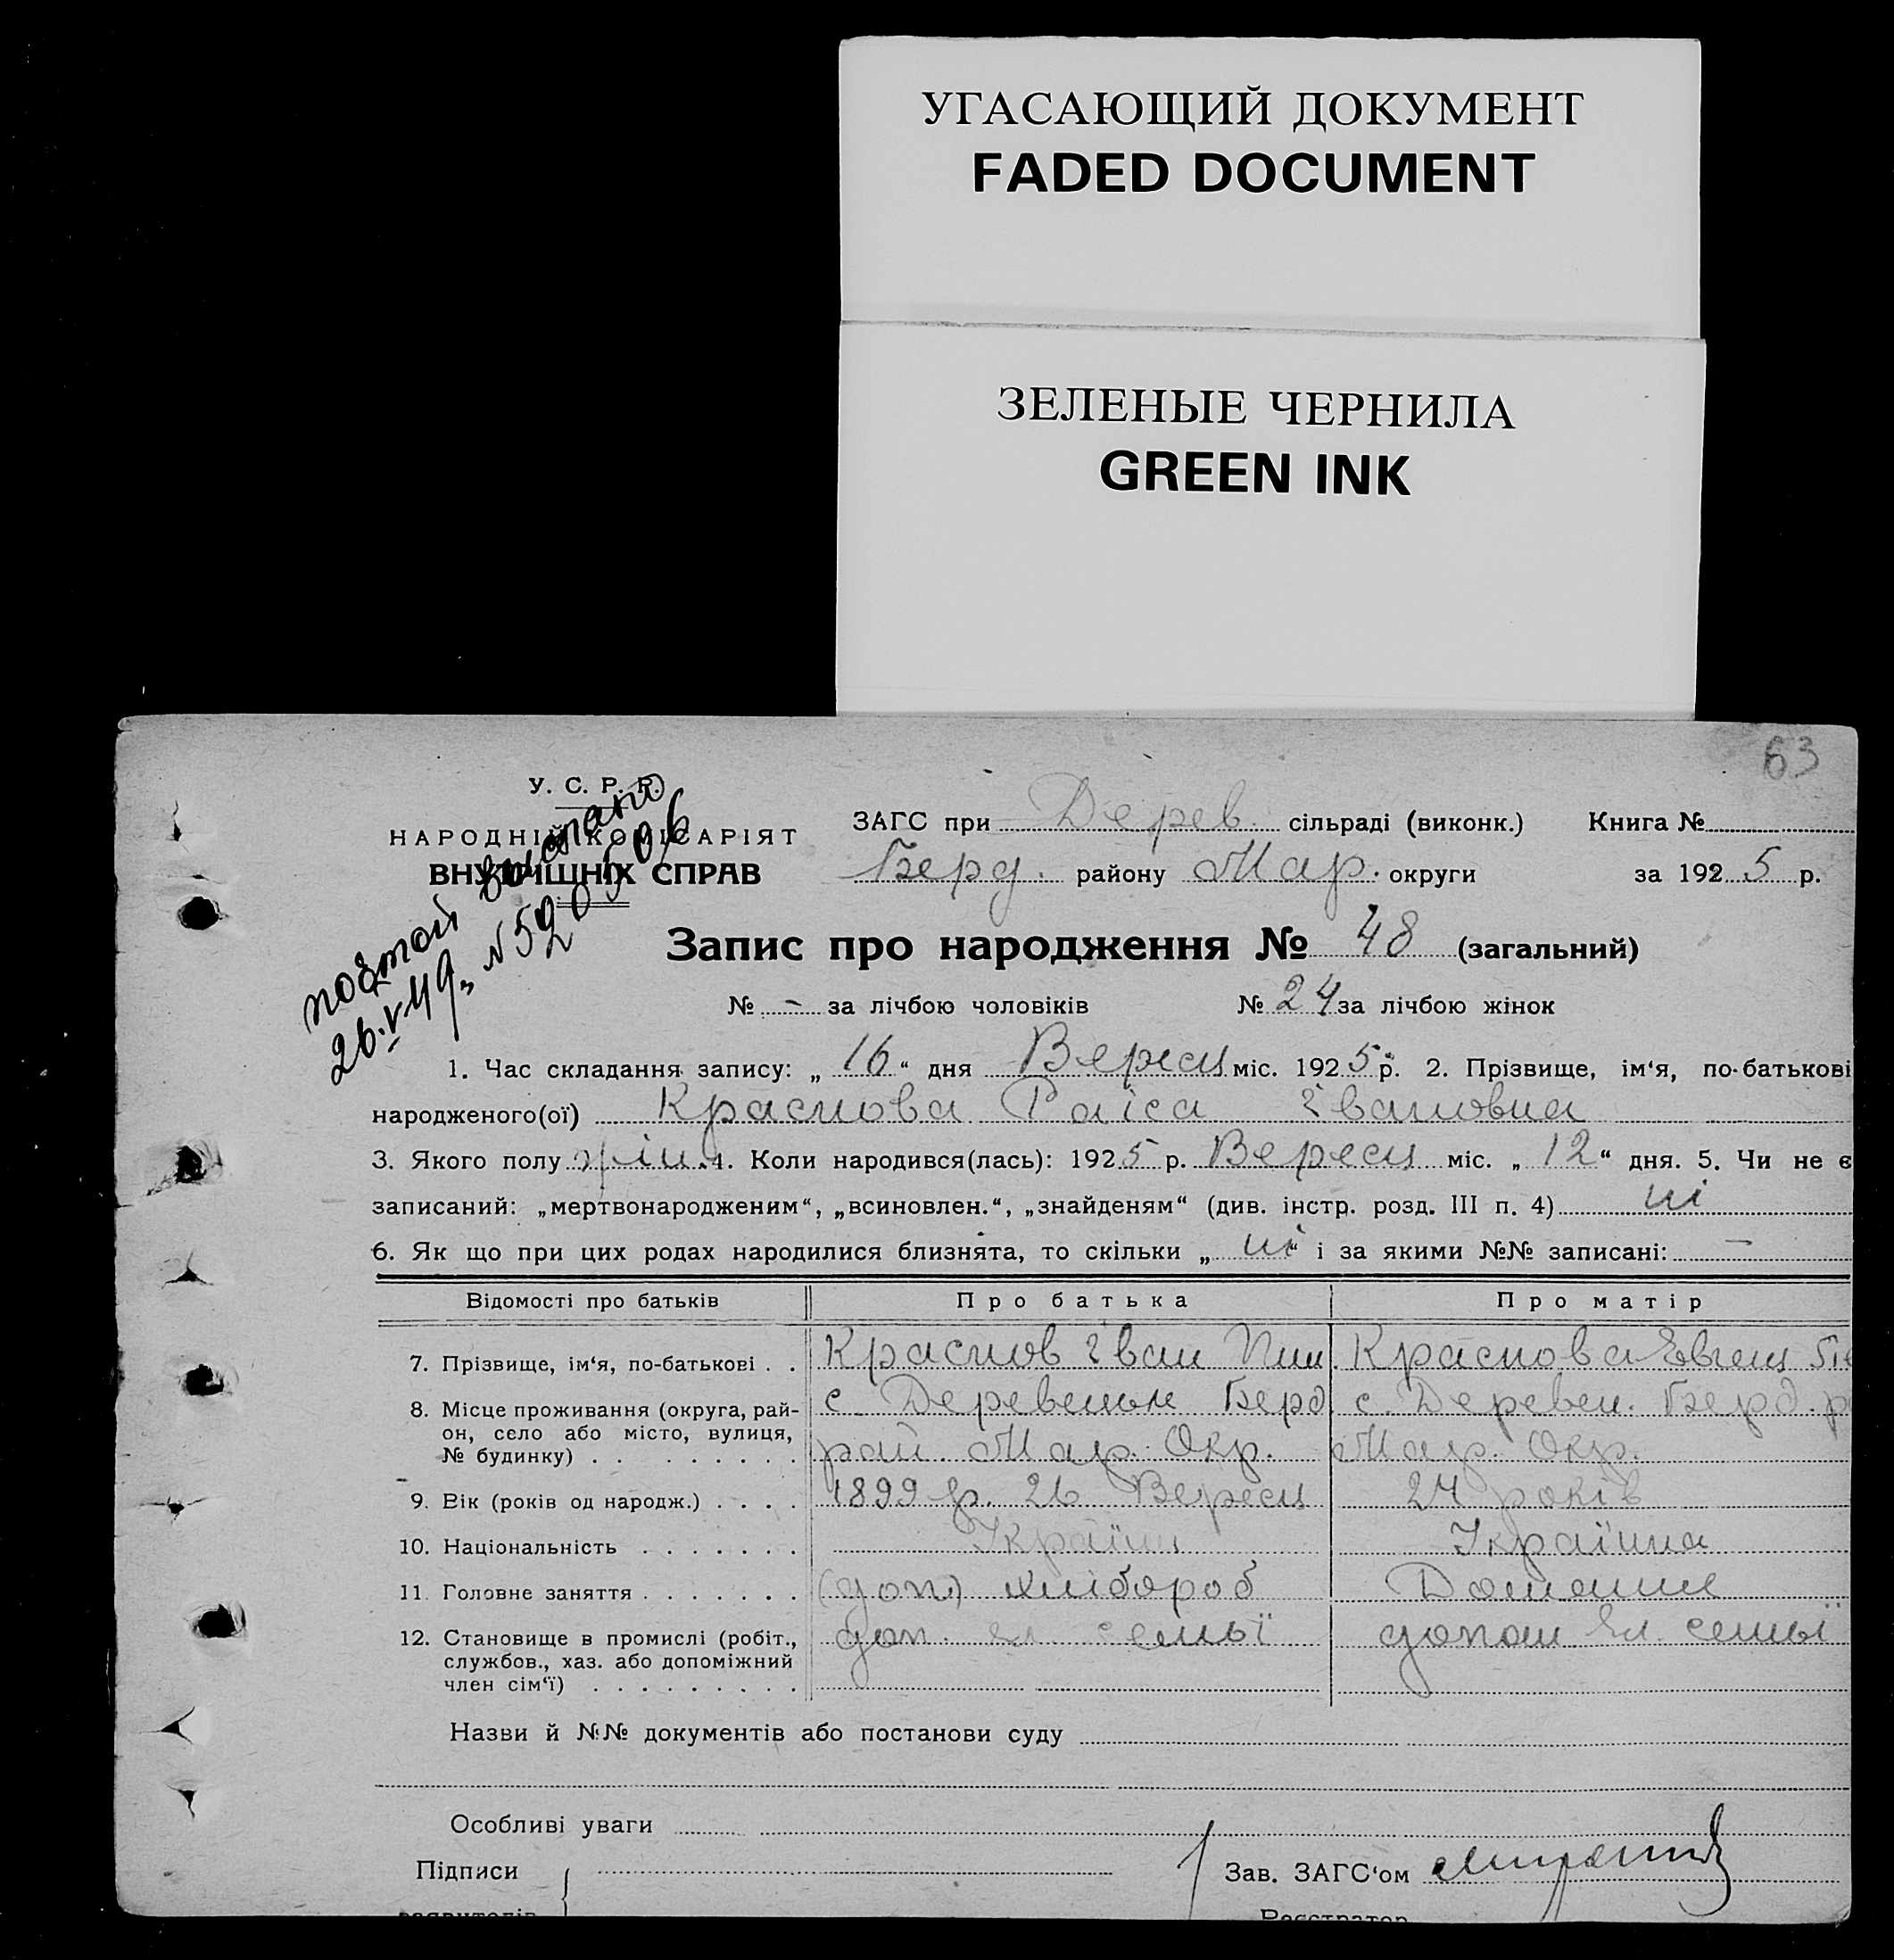 УГАСАЮЩИЙ ДОКУМЕНТ
FADED DOCUMENT
ЗЕЛЕНЫЕ ЧЕРНИЛА
GREEN INK
63
У. С. Р. Р.
НАРОДНІЙ КОМІСАРІЯТ
ВНУТРІШНІХ СПРАВ
26.V-49
ЗАГС при Дерев. сільраді (виконк.) Книга №
Берд. району Мар. округи за 1925 р.
Запис про народження № 48 (загальний)
№ - за лічбою чоловіків № 24 за лічбою жінок
1. Час складання запису: „ 16 “ дня Вересн міс. 1925 р. 2. Прізвище, ім‘я, по-батькові
народженого(ої) Краснова Раіса Івановна
3. Якого полу жін. 4. Коли народився(лась): 1925 р. Вересн міс. „ 12 “ дня. 5. Чи не є
записаний: „мертвонародженим“, „всиновлен.“, „знайденям“ (див. інстр. розд. III п. 4) ні
6. Як що при цих родах народилися близнята, то скільки „ ні “ і за якими №№ записані: —
Відомості про батьків Про батька Про матір
7. Прізвище, ім‘я, по-батькові . . Краснов Іван Краснова Евген
8. Місце проживання (округа, рай- с. Деревеньк Берд с. Деревен. Берд. р
он, село або місто, вулиця, рай. Мар. Окр. Мар. Окр.
№ будинку) . . . . . . . .
9. Вік (років од народж.) . . . . 1899 р. 26 Вересн 24 років
10. Національність . . . . . . . Україн Українна
11. Головне заняття . . . . . . . (доп) хлібороб Домашнє
12. Становище в промислі (робіт., доп. чл. семьї допом чл. семьї
службов., хаз. або допоміжний
член сім‘ї) . . . . . . . . .
Назви й №№ документів або постанови суду
Особливі уваги
Підписи Зав. ЗАГС‘ом
заявителів Реєстратор